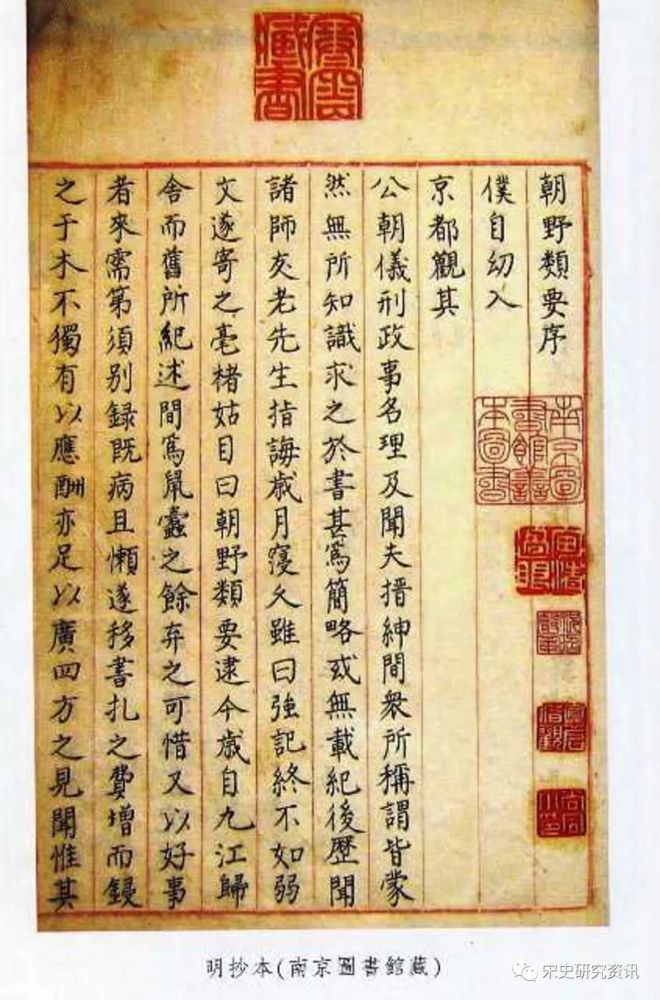 朝野類要序
僕自幼入
京都觀其
公朝儀刑政事名理及聞夫搢紳間衆所稱謂皆蒙
然無所知識求之於書甚爲簡略或無載紀後歷聞
諸師友老先生指誨歲月寖久雖曰強記終不如弱
文遂寄之毫楮姑目曰朝野類要逮今歲自九江歸
舍而舊所紀述間爲鼠蠹之餘弃之可惜又以好事
者來需第須別録既病且懶遂移書扎之費增而鋟
之于木不獨有以應酬亦足以廣四方之見聞惟其
南京圖書館善本圖書
明抄本(南京圖書館藏)
宋史研究资讯